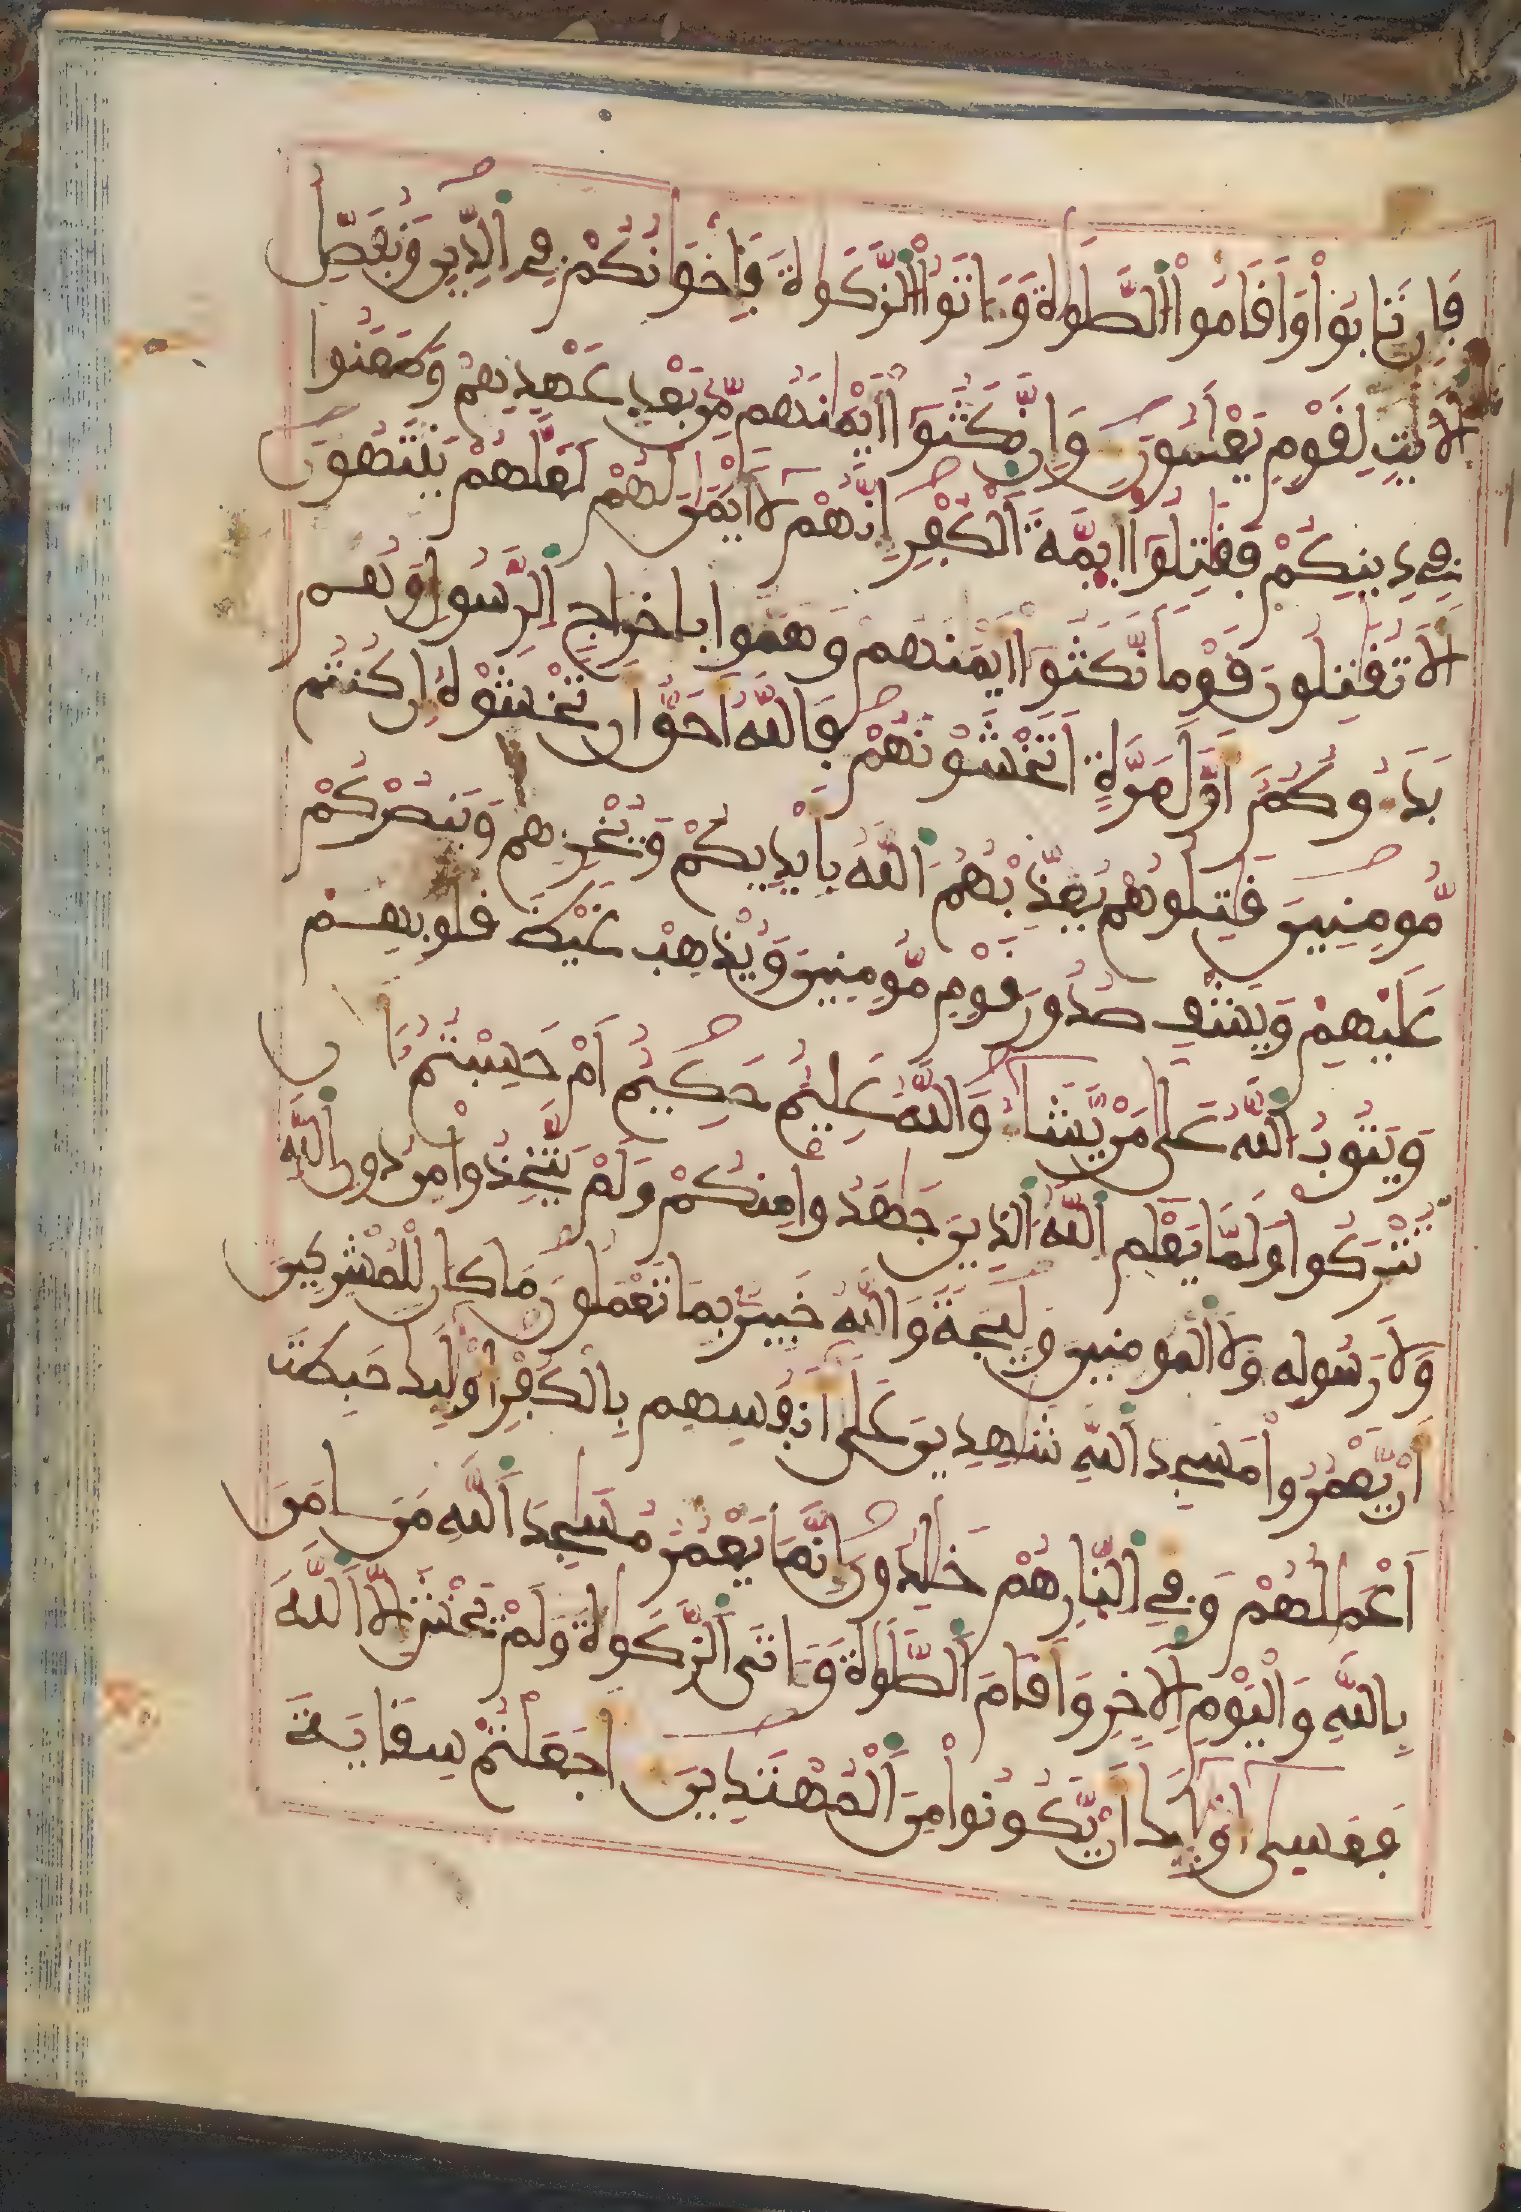 فَإِن تَابُواْ وَأَقَامُواْ اُلصَّلَوٰةَ وَءَاتَوُاْ اُلزَّكَوٰةَ فَإِخْوَانُكُمْ فِے اِلدِّينِ وَنُفَصِّلُ
اُلَايَٰتِ لِقَوْمٍ يَعْلَمُونَ وَإِن نَّكَثُوٓاْ أَيْمَٰنَهُم مِّنۢ بَعْدِ عَهْدِهِمْ وَطَعَنُواْ
فِے دِينِكُمْ فَقَٰتِلُوٓاْ أَئِمَّةَ اَلْكُفْرِ إِنَّهُمْ لَآ أَيْمَٰنَ لَهُمْ لَعَلَّهُمْ يَنتَهُونَ
أَلَا تُقَٰتِلُونَ قَوْماً نَّكَثُوٓاْ أَيْمَٰنَهُمْ وَهَمُّواْ بِإِخْرَاجِ اِلرَّسُولِ وَهُم
بَدَءُوكُمُۥٓ أَوَّلَ مَرَّةٍ أَتَخْشَوْنَهُمْ فَاللَّهُ أَحَقُّ أَن تَخْشَوْهُ إِن كُنتُم
مُّومِنِينَ قَٰتِلُوهُمْ يُعَذِّبْهُمُ اُللَّهُ بِأَيْدِيكُمْ وَيُخْزِهِمْ وَيَنصُرْكُمْ
عَلَيْهِمْ وَيَشْفِ صُدُورَ قَوْمٍ مُّومِنِينَ وَيُذْهِبْ غَيْظَ قُلُوبِهِمْ
وَيَتُوبُ اُللَّهُ عَلَىٰ مَنْ يَّشَآءُ وَاللَّهُ عَلِيمٌ حَكِيمٌ أَمْ حَسِبْتُمُۥٓ أَن
تُتْرَكُواْ وَلَمَّا يَعْلَمِ اِللَّهُ اُلذِينَ جَٰهَدُواْ مِنكُمْ وَلَمْ يَتَّخِذُواْ مِن دُونِ اِللَّهِ
وَلَا رَسُولِهِ وَلَا اَلْمُومِنِينَ وَلِيجَةً وَاللَّهُ خَبِيرٌ بِمَا تَعْمَلُونَ مَا كَانَ لِلْمُشْرِكِينَ
أَنْ يَّعْمُرُواْ مَسَٰجِدَ اَللَّهِ شَٰهِدِينَ عَلَىٰٓ أَنفُسِهِم بِالْكُفْرِ أُوْلَٰٓئِكَ حَبِطَتَ
اَعْمَٰلُهُمْ وَفِے اِلنَّارِ هُمْ خَٰلِدُونَ إِنَّمَا يَعْمُرُ مَسَٰجِدَ اَللَّهِ مَنَ اٰمَنَ
بِاللَّهِ وَالْيَوْمِ اِلَاخِرِ وَأَقَامَ اَلصَّلَوٰةَ وَءَاتَى اَلزَّكَوٰةَ وَلَمْ يَخْشَ إِلَّا اَللَّهَ
فَعَسَىٰٓ أُوْلَٰٓئِكَ أَنْ يَّكُونُواْ مِنَ اَلْمُهْتَدِينَ أَجَعَلْتُمْ سِقَايَةَ